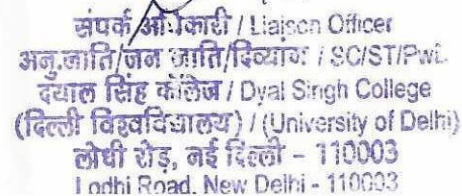 संपर्क अधिकारी / Liaison Officer
अनु.जाति/जन जाति/दिव्यांग / SC/ST/PwD
दयाल सिंह कॉलेज / Dyal Singh College
(दिल्ली विश्वविद्यालय) / (University of Delhi)
लोधी रोड, नई दिल्ली – 110003
Lodhi Road, New Delhi - 110003